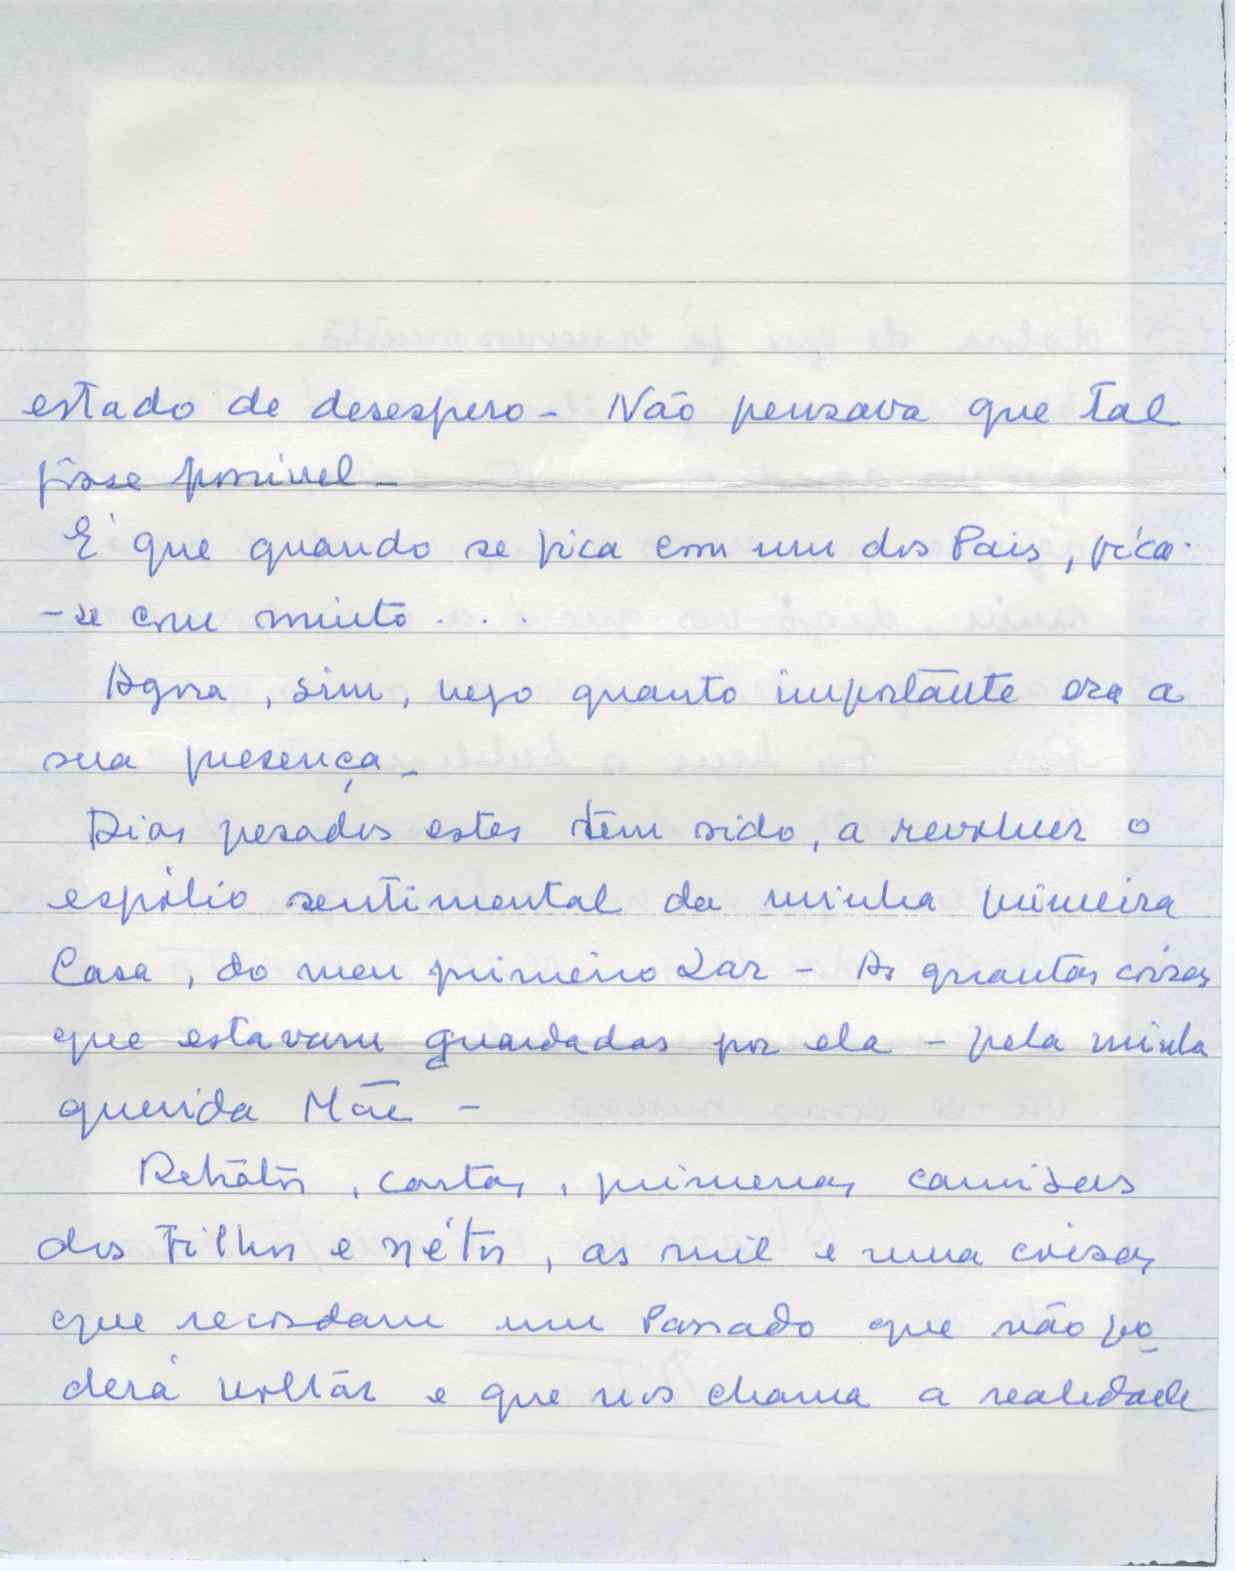 estado de desespero - Não pensava que tal
fôsse possivel -
É que quando se fica com um dos Pais, fica-
-se com muito....
Agora, sim, vejo quanto importante era a
sua presença -
Dias pesados estes têm sido, a revolver o
espólio sentimental da minha primeira
Casa, do meu primeiro Lar - As quantas coisas
que estavam guardadas por ela - pela minha
querida Mãe -
Retratos, cartas, primeiras camisas
dos Filhos e nétos, as mil e uma coisas
que recordam um Passado que não po
derá voltar e que nos chama a realidade